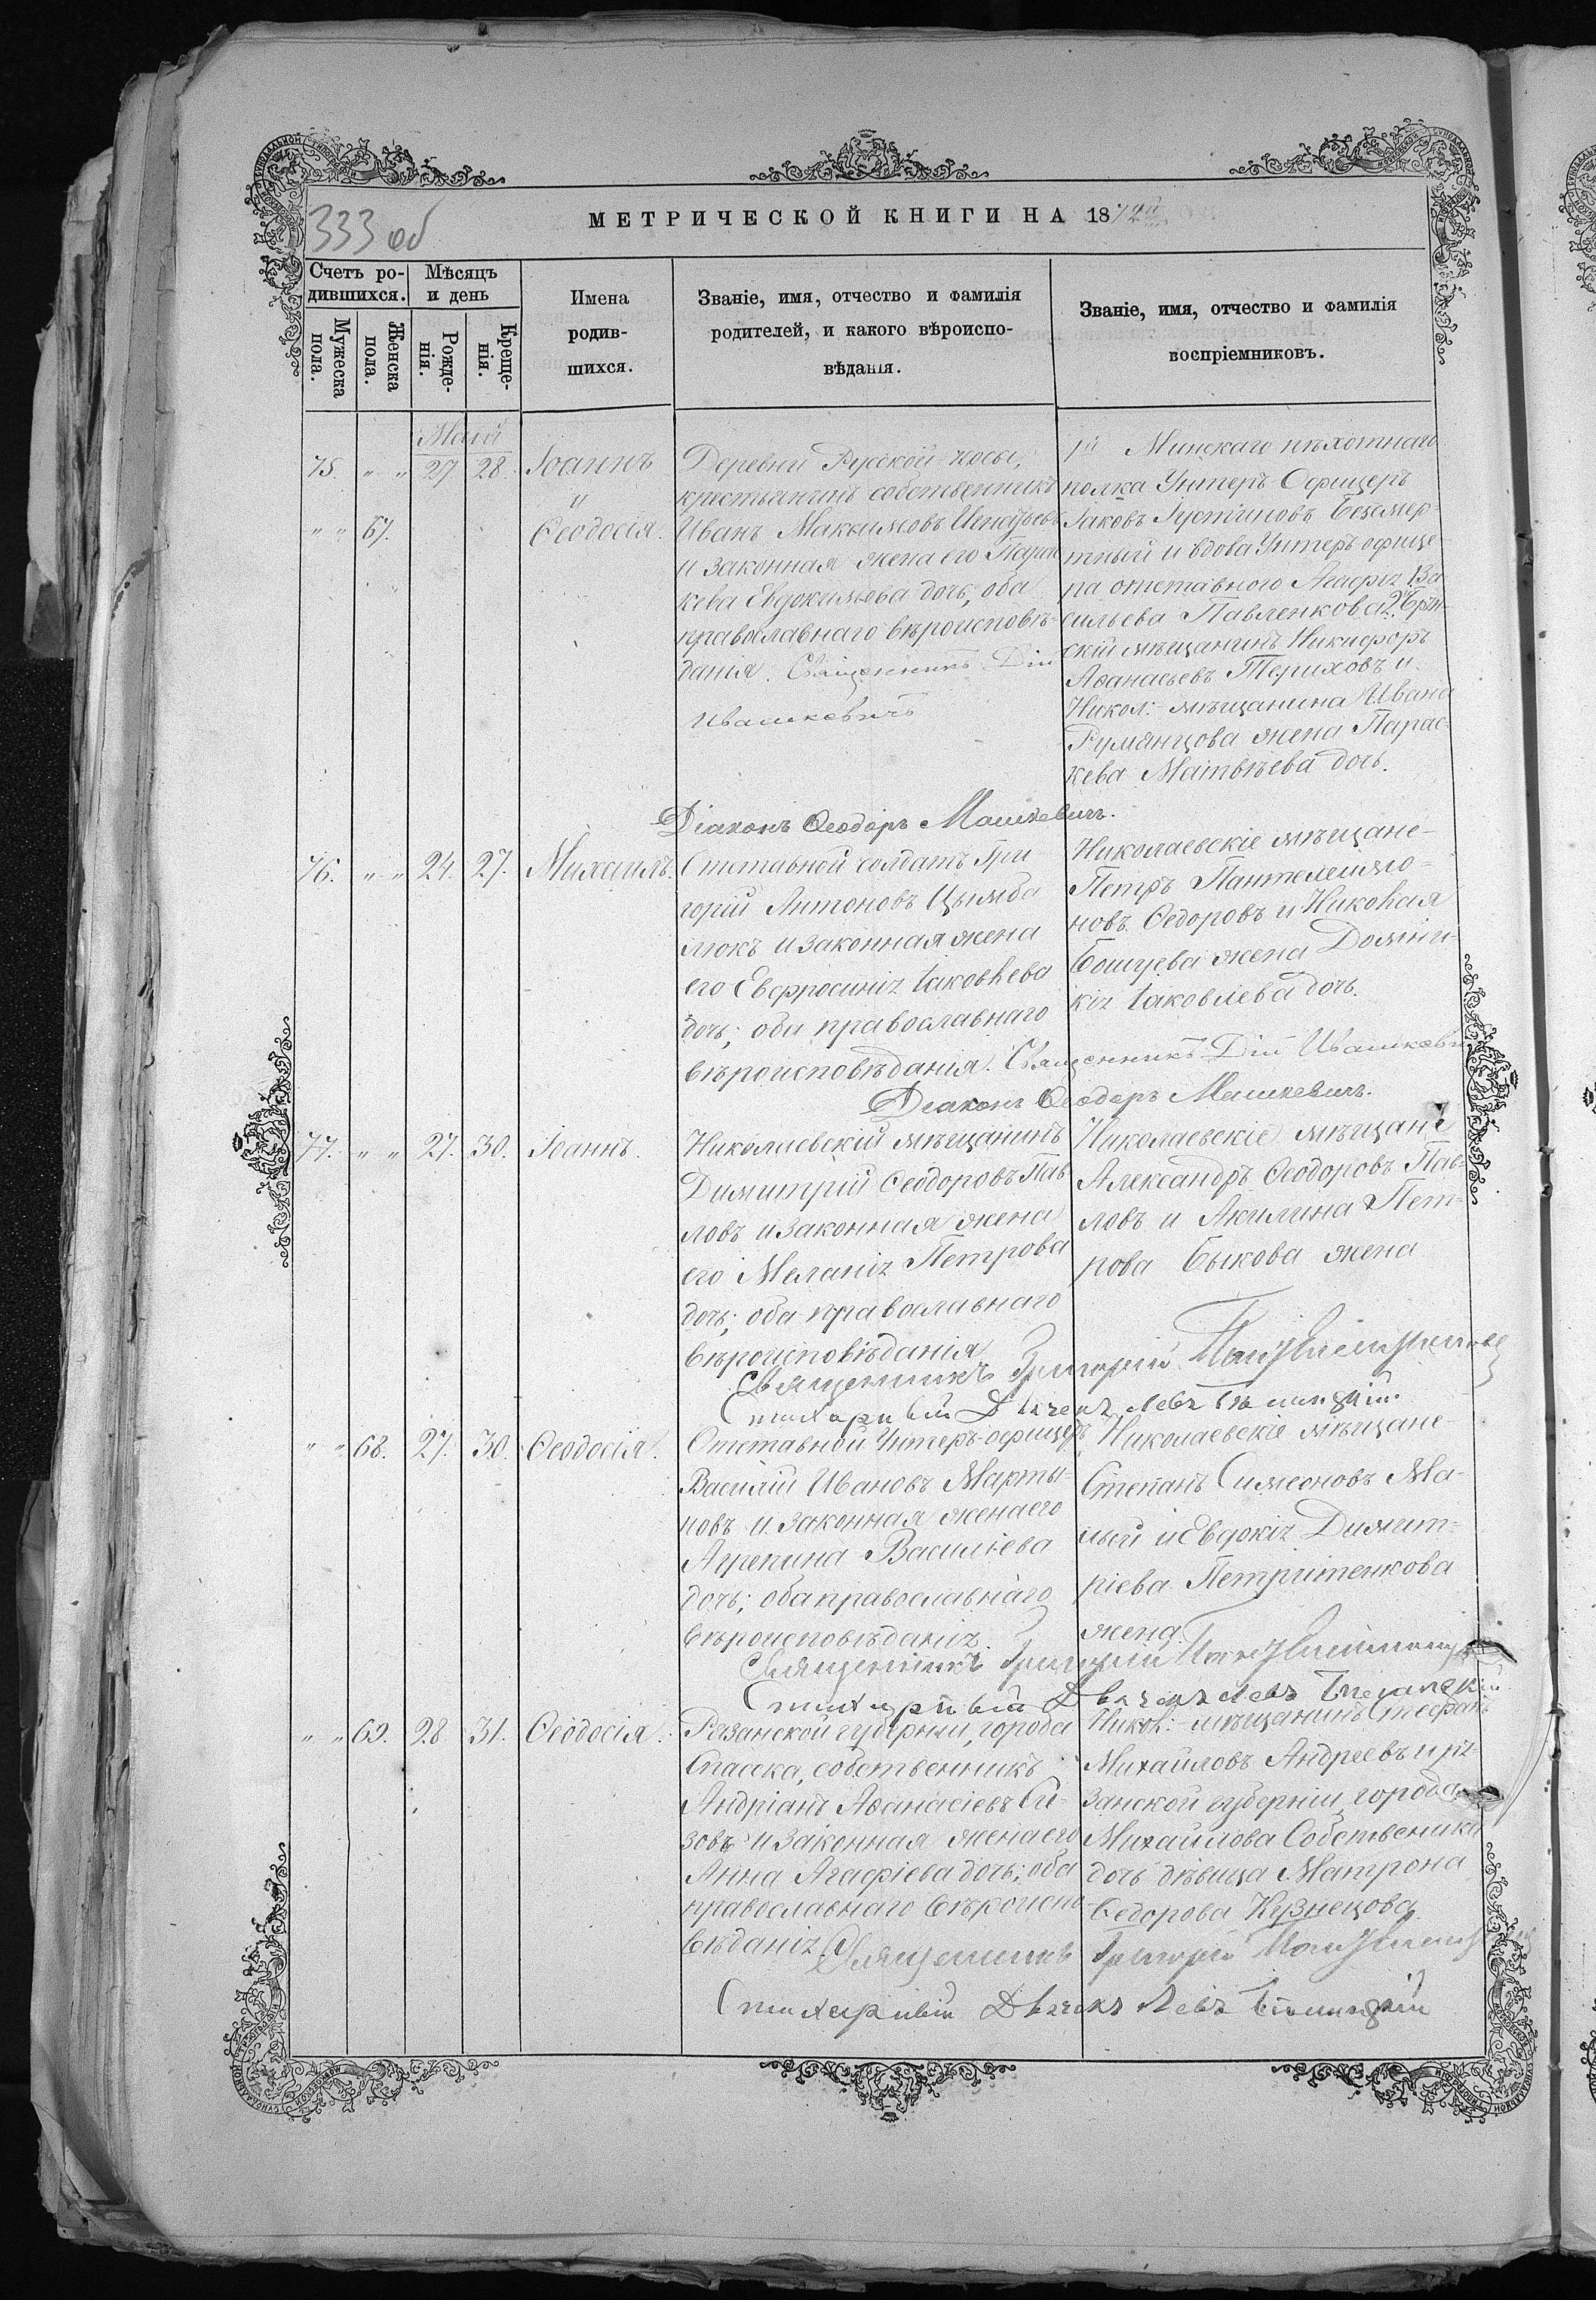 333 об
МЕТРИЧЕСКОЙ КНИГИ НА 1872й
Счетъ ро-
дившихся.
Мѣсяцъ
и день
Мужеска
пола.
Женска
пола.
Рожде-
нія.
Креще-
нія.
Имена
родив-
шихся.
Званіе, имя, отчество и фамилія
родителей, и какого вѣроиспо-
вѣданія.
Званіе, имя, отчество и фамилія
воспріемниковъ.
Маій
75. " " 27 28. Іоаннъ
и
" " 67. Ѳеодосія.
Деревни Русской Косы,
крестьянинъ собственникъ
Иванъ Максимовъ Игнатьевъ
и законная жена его Парас
кева Евдокимова дочь, оба
православнаго вѣроисповѣ-
данія. Священникъ Дій
Ивашкевичъ
1й Минскаго пѣхотнаго
полка Унтеръ Офицеръ
Іаковъ Іустиновъ Безсмер-
тный и вдова Унтеръ офице-
ра отставного Агафія Ва
сильева Павленкова 2й
скій мѣщанинъ Никифоръ
Аѳанасьевъ Териховъ и
Никол: мѣщанина Ивана
Румянцова жена Парас-
кева Матвѣева дочь.
Діаконъ Ѳеодоръ Машкевичъ.
76. " " 24. 27. Михаилъ.
Отставной солдатъ Гри
горій Антоновъ Цымба
люкъ и законная жена
его Евфросинія Іаковлева
дочь; оба православнаго
вѣроисповѣданія. Священникъ Дій Ивашкевичъ
Николаевскіе мѣщане-
Петръ Пантелеимо-
новъ Ѳедоровъ и Николая
жена Домни-
кія Іаковлева дочь.
Діаконъ Ѳеодоръ Машкевичъ.
77. " " 27. 30. Іоаннъ.
Николаевскій мѣщанинъ
Димитрій Ѳеодоровъ Пав
ловъ и законная жена
его Меланія Петрова
дочь; оба православнаго
вѣроисповѣданія
Николаевскіе мѣщане
Александръ Ѳеодоровъ Пав-
ловъ и Акилина Пет-
рова Быкова жена
Священникъ Григорій
Стихарный Дьячекъ Левъ
" " 68. 27. 30. Ѳеодосія.
Отставной Унтеръ-офицеръ
Василій Ивановъ Марты-
новъ и законная жена его
Агрепина Василіева
дочь; оба православнаго
вѣроисповѣданія.
Николаевскіе мѣщане-
Стефанъ Симеоновъ Ма-
лый и Евдокія Димит-
ріева Петриченкова
жена.
Священникъ Григорій
Стихарный Дьячекъ Левъ
" " 69. 28. 31. Ѳеодосія.
Рязанской губерніи, города
Спасска, собственникъ
Андріанъ Аѳанасіевъ Си-
зовъ и законная жена его
Анна Агафіева дочь; оба
православнаго вѣроиспо-
вѣданія.
Никол:- мѣщанинъ Стефанъ
Михайловъ Андреевъ и ря-
занской губерніи, города
Михайлова Собственика
дочь дѣвица Матрона
Ѳедорова Кузнецова.
Священникъ Григорій
Стихарный Дьячекъ Левъ